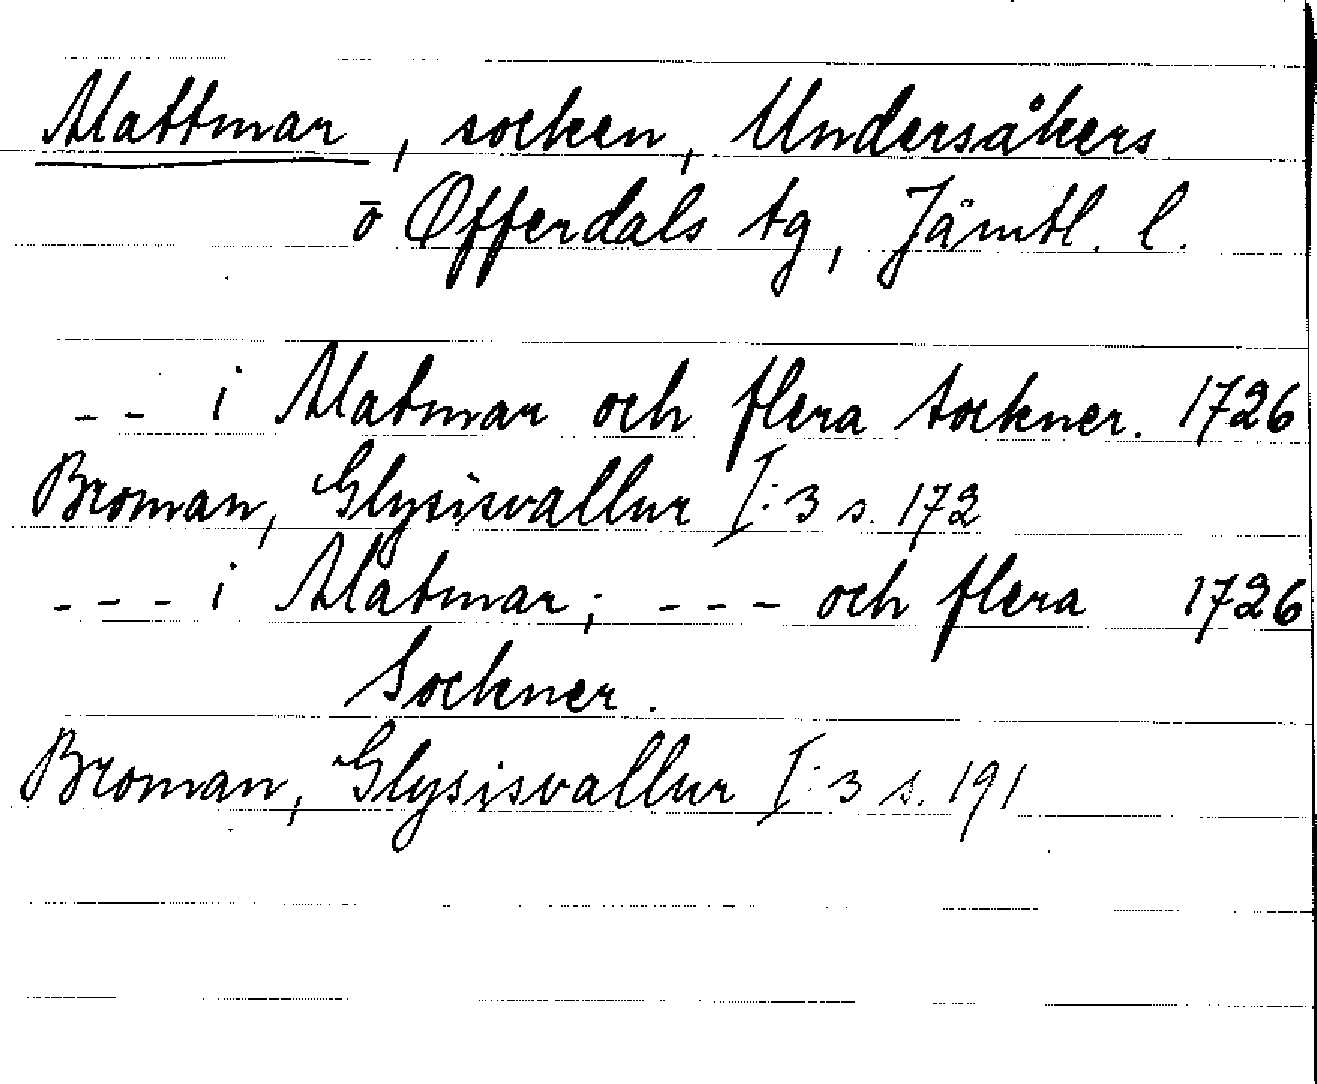 Mattmar, socken, Undersåkers
o̅ Offerdals tg, Jämtl. l.
-- i Matmar och flera sockner. 1726
Broman, Glysisvallur I:3 s. 172
--- i Matmar; --- och flera 1726
Sockner.
Broman, Glysisvallur I:3 s. 191